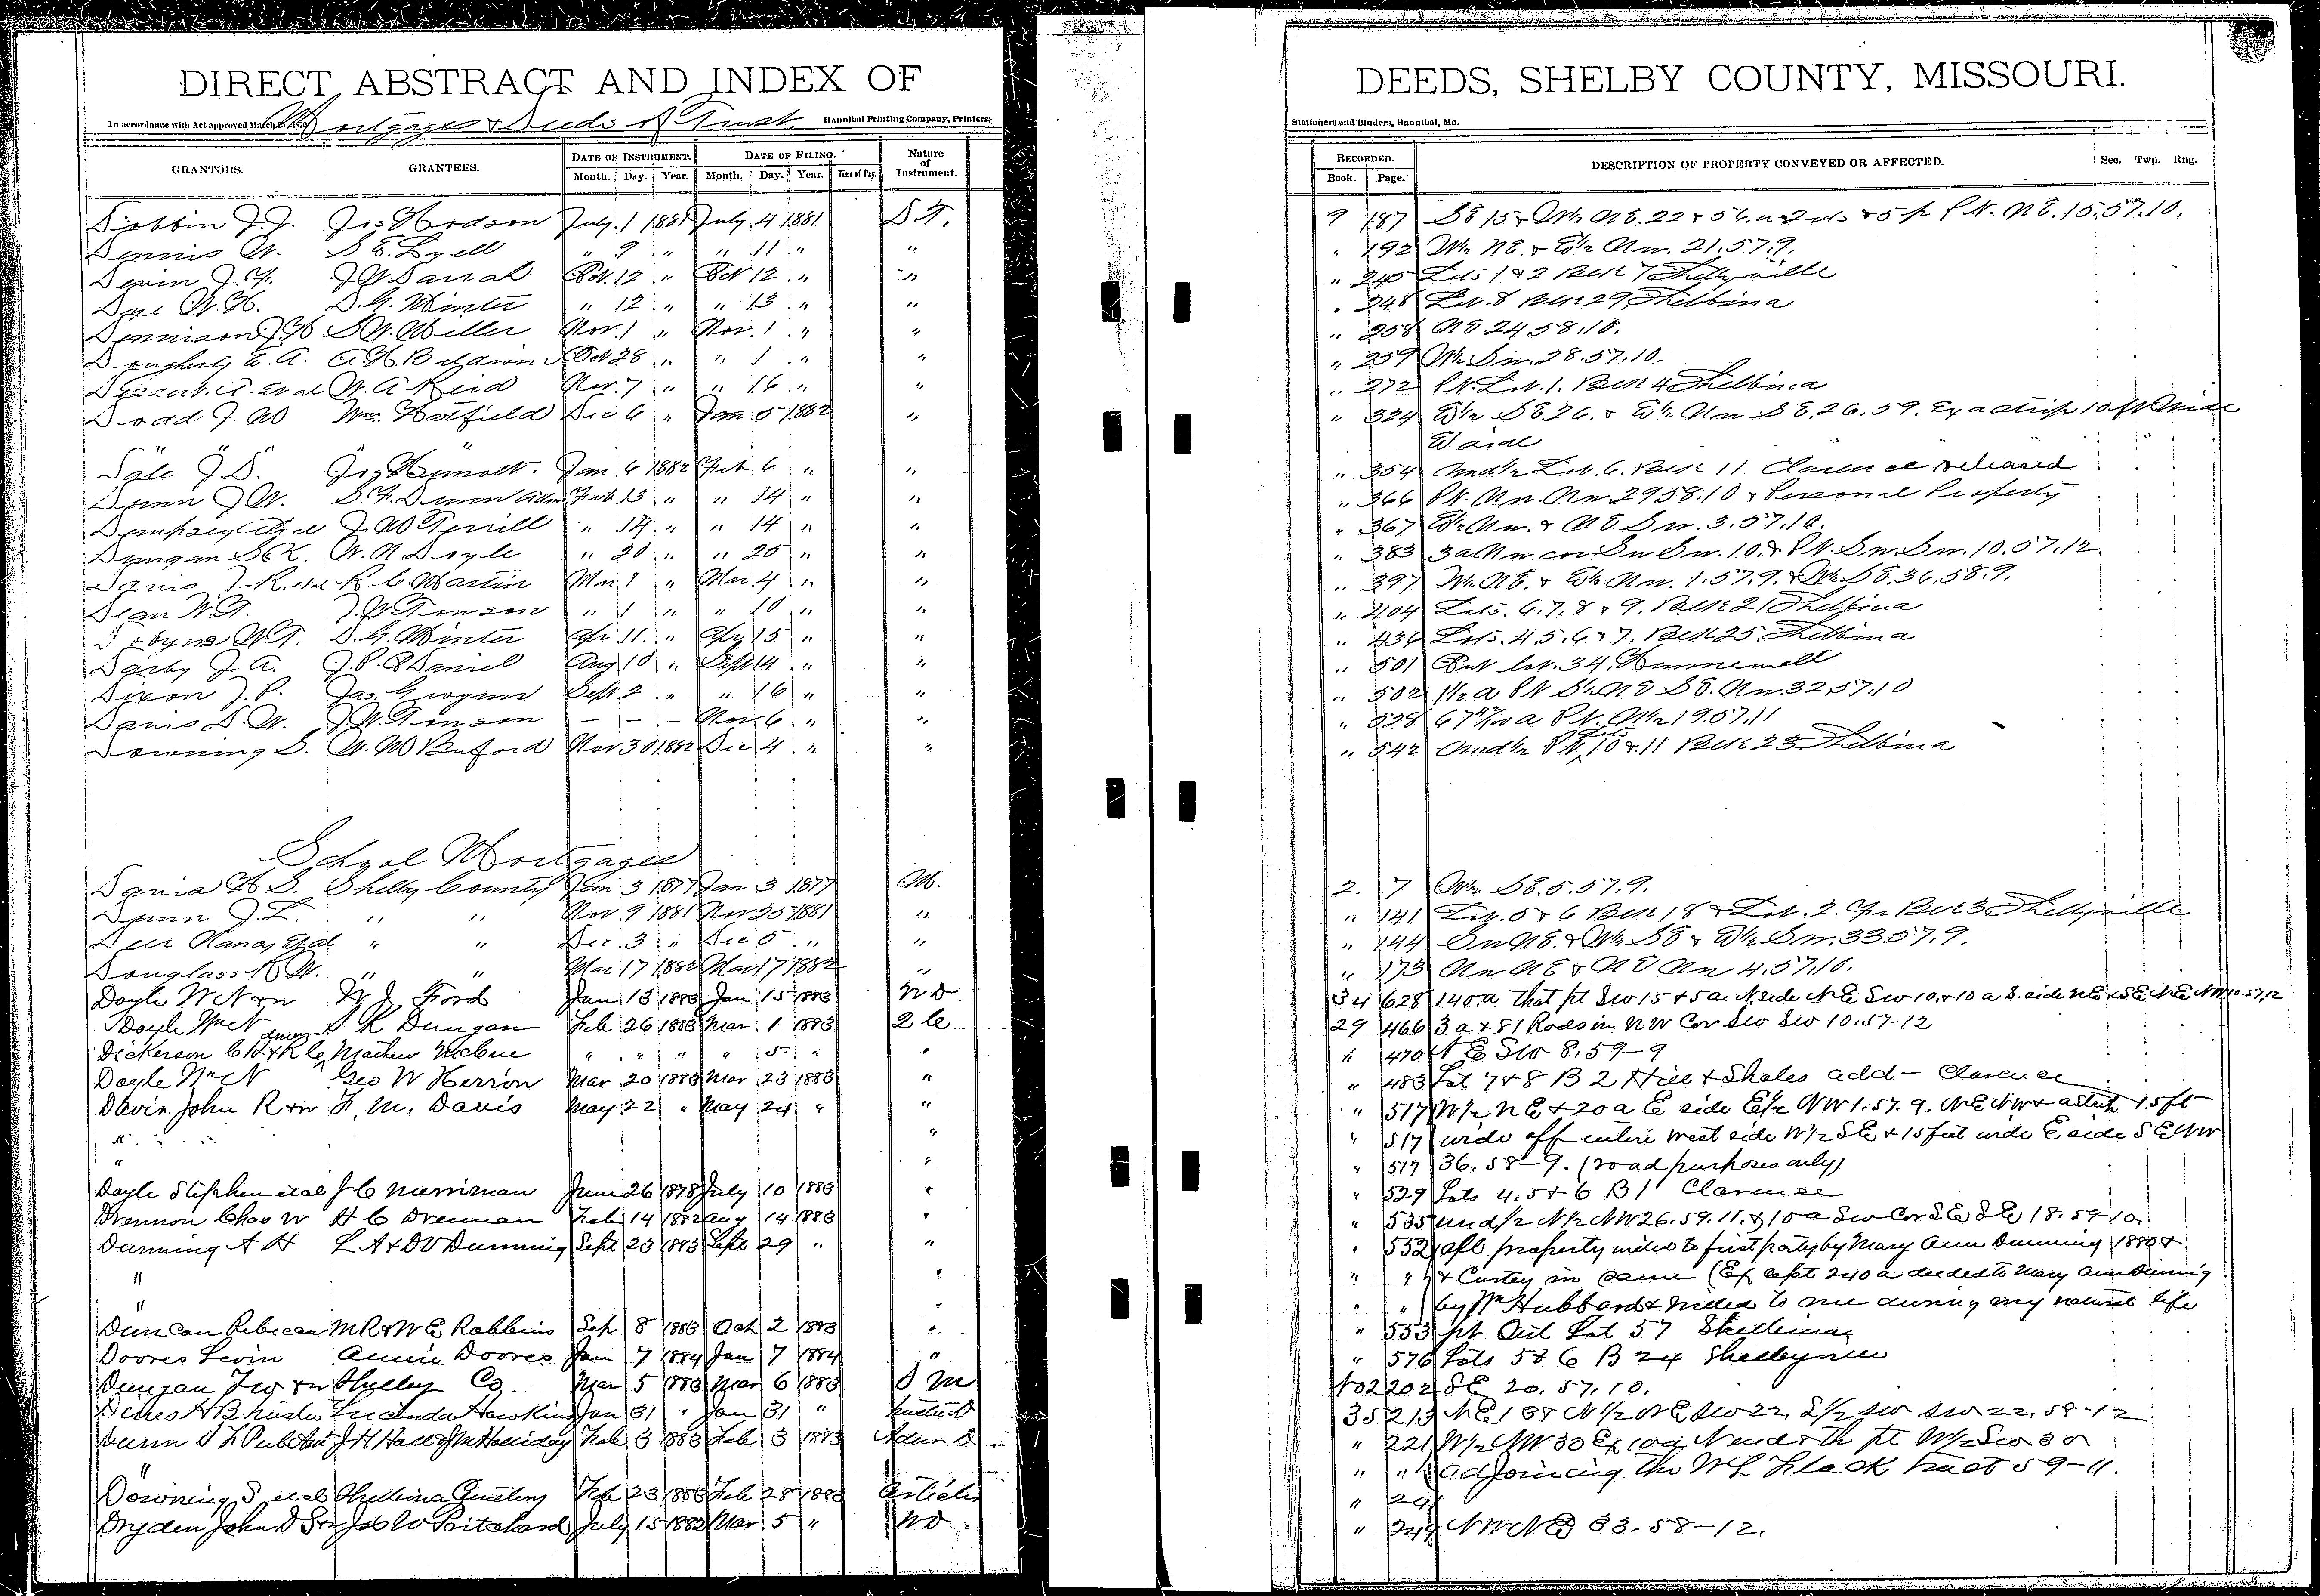 DIRECT ABSTRACT AND INDEX OF
Mortgages & Deeds of Trust.
In accordance with Act approved March Hannibal Printing Company, Printers,
GRANTORS. GRANTEES. DATE OF INSTRUMENT. DATE OF FILING. Nature of Instrument.
Month. Day. Year. Month. Day. Year. Time of Day.
Dobbin J.J. Jos Hodson July 1 1881 July 4 1881 D.T.
Dennis W. S E. Lyell " 9 " " 11 " "
Devin J. H. J W Darrah Oct. 12 " Oct 12 " "
Dye W.H. D.G. Minter " 12 " " 13 " "
Dennison J W S W. Miller Nov. 1 " Nov. 1 " "
Dougherty E. A. A H. Baldwin Oct 28 " " 1 " "
A. et al W. A Reid Nov. 7 " " 16 " "
Doad J. W Wm. Hatfield Dec 6 " Jan 5 1882 "
" " "
Dale J D. Jos Jan 6 1882 Feb. 6 " "
Dunn J W. S. F. Dunn Adm Feb. 13 " " 14 " "
Dempsey et al J. W Terrill " 14 " " 14 " "
Dungan S K. W. N Doyle " 20 " " 25 " "
Davis J. R. et al R. C. Martin Mar. 1 " Mar. 4 " "
Dean W. T. J. W Timson " 1 " " 10 " "
Dobyns W. T. D. G. Minter Apr 11 " Apr 15 " "
Darby J. A. J. P. Daniel Aug 10 " Sept 14 " "
Dixon J. P. Jas. Grogan Sept. 2 " " 16 " "
Davis D. W. J. W. Timson — — — Nov. 6 " "
Downing S. W. W Buford Nov 30 1882 Dec 4 " "
School Mortgages
Davis H S. Shelby County Jan 3 1877 Jan 3 1877 M.
Dunn J. L. " " Nov 9 1881 Nov 25 1881 "
Deer Nancy et al " " Dec 3 " Dec 5 " "
Douglass R W. " " Mar 17 1882 Mar 17 1882 "
Doyle W N & w W J Ford Jan 13 1883 Jan 15 1883 W D
Doyle Wm N S K Dungan Feb 26 1883 Mar 1 1883 2 C
Dickerson C H & R C Mathew McCune " " " " 5 " "
Doyle Wm N Geo W Herrin Mar 20 1883 Mar 23 1883 "
Davis John R & w F. M. Davis May 22 " May 24 " "
" " " "
" "
Doyle Stephen et al J C Merriman June 26 1878 July 10 1883 "
Drennon Chas W H C Drennan Feb 14 1882 Aug 14 1883 "
Dunning A H L A & D V Dunning Sept 23 1883 Sept 29 " "
" "
" "
Duncan Rebecca M R & W E Robbins Sep 8 1883 Oct 2 1883 "
Doores Levin Annie Doores Jan 7 1884 Jan 7 1884 "
Dungan F W & w Shelby Co Mar 5 1883 Mar 6 1883 S M
H B Trustee Lucinda Hawkins Jan 31 " Jan 31 "
Dunn S F Pub Adm J H Hall & J M Holliday Feb 3 1883 Feb 3 1883 Adm D
"
Downing S et al Shelbina Cemetery Feb 23 1883 Feb 28 1883 Articles
Dryden John D S & w Job W Pritchard July 15 1882 Mar 5 " W D
DEEDS, SHELBY COUNTY, MISSOURI.
Stationers and Binders, Hannibal, Mo.
RECORDED. DESCRIPTION OF PROPERTY CONVEYED OR AFFECTED. Sec. Twp. Rng.
Book. Page.
9 187 SE 15 & NE. 22 & 56. a 2 & 5 p Pt. NE. 15.57.10.
" 192 W½ NE. & E½ NW. 21.57.9.
" 240 Lots 1 & 2 Blk 7 Shelbyville
" 248 Lot. 8 Blk 29 Shelbina
" 258 NE 24.58.10.
" 259 W½ SW. 28.57.10.
" 272 Pt. Lot. 1. Blk 4 Shelbina
" 324 E½ SE. 26. & E½ NW SE. 26.59. Ex a strip 10 ft Wide
E side
" 354 Und½ Lot. 6. Blk 11 Clarence released
" 366 Pt. NW. NW 29 58.10 & Personal Property
" 367 E½ NW. & NE SW. 3.57.10.
" 383 3a NW cor SW SW. 10. & Pt. SW. SW. 10.57.12.
" 397 W½ NE. & E½ NW. 1.57.9. & W½ SE. 36.58.9.
" 404 Lots. 6.7.8 & 9. Blk 21 Shelbina
" 436 Lots. 4.5.6 & 7. Blk 25 Shelbina
" 501 Out lot. 34. Hunnewell
" 502 1½ a Pt S½ NE SE. NW. 32.57.10
" 528 67 a Pt. 19.57.11
" 542 Und½ Pt Lots 10 & 11 Blk 23 Shelbina
2. 7 SE. 5.57.9.
" 141 Lot. 5 & 6 Blk 18 & Lot. 2. Blk 3 Shelbyville
" 144 SW NE. & W½ SE & E½ SW. 33.57.9.
" 173 NW NE & NE NW 4.57.10.
34 628 140.a That pt SW 15 & 5 a. N. side NE SW 10. & 10 a S. side NE & SE NE NW 10.57.12
29 466 3 a & 81 Rods in NW Cor SW SW 10.57-12
" 470 NE SW 8.59-9
" 483 Lot 7 & 8 B 2 Hill & Shales add - Clarence
" 517 W½ NE & 20 a E side E½ NW 1.57.9. NE NW & a strip 15 ft
" 517 wide off entire west side W½ SE & 15 feet wide E side SE NW
" 517 36.58-9. (road purposes only)
" 529 Lots 4.5 & 6 B 1 Clarence
" 535 Und½ N½ NW 26.59.11. & 10 a SW Cor SE SE 18.59-10.
" 532 All property willed to first party by Mary Ann Dunning 1880 &
" " & Curtsy in same (Except 240 a deeded to Mary Ann Dunning
" " by Wm Hubbard & willed to me during my natural life
" 553 pt Out Lot 57 Shelbina
" 576 Lots 5 & 6 B 24 Shelbyville
No 2 202 SE 20.57.10.
35 213 & N½ NE SW 22, S½ SW SW 22.58-12
" 221 W½ NW 30 Ex 10 a N end & th pt W½ SW 30
" " adjoining the W L Black tract 59-11.
" 24
" 249 NW NE 33.58-12.